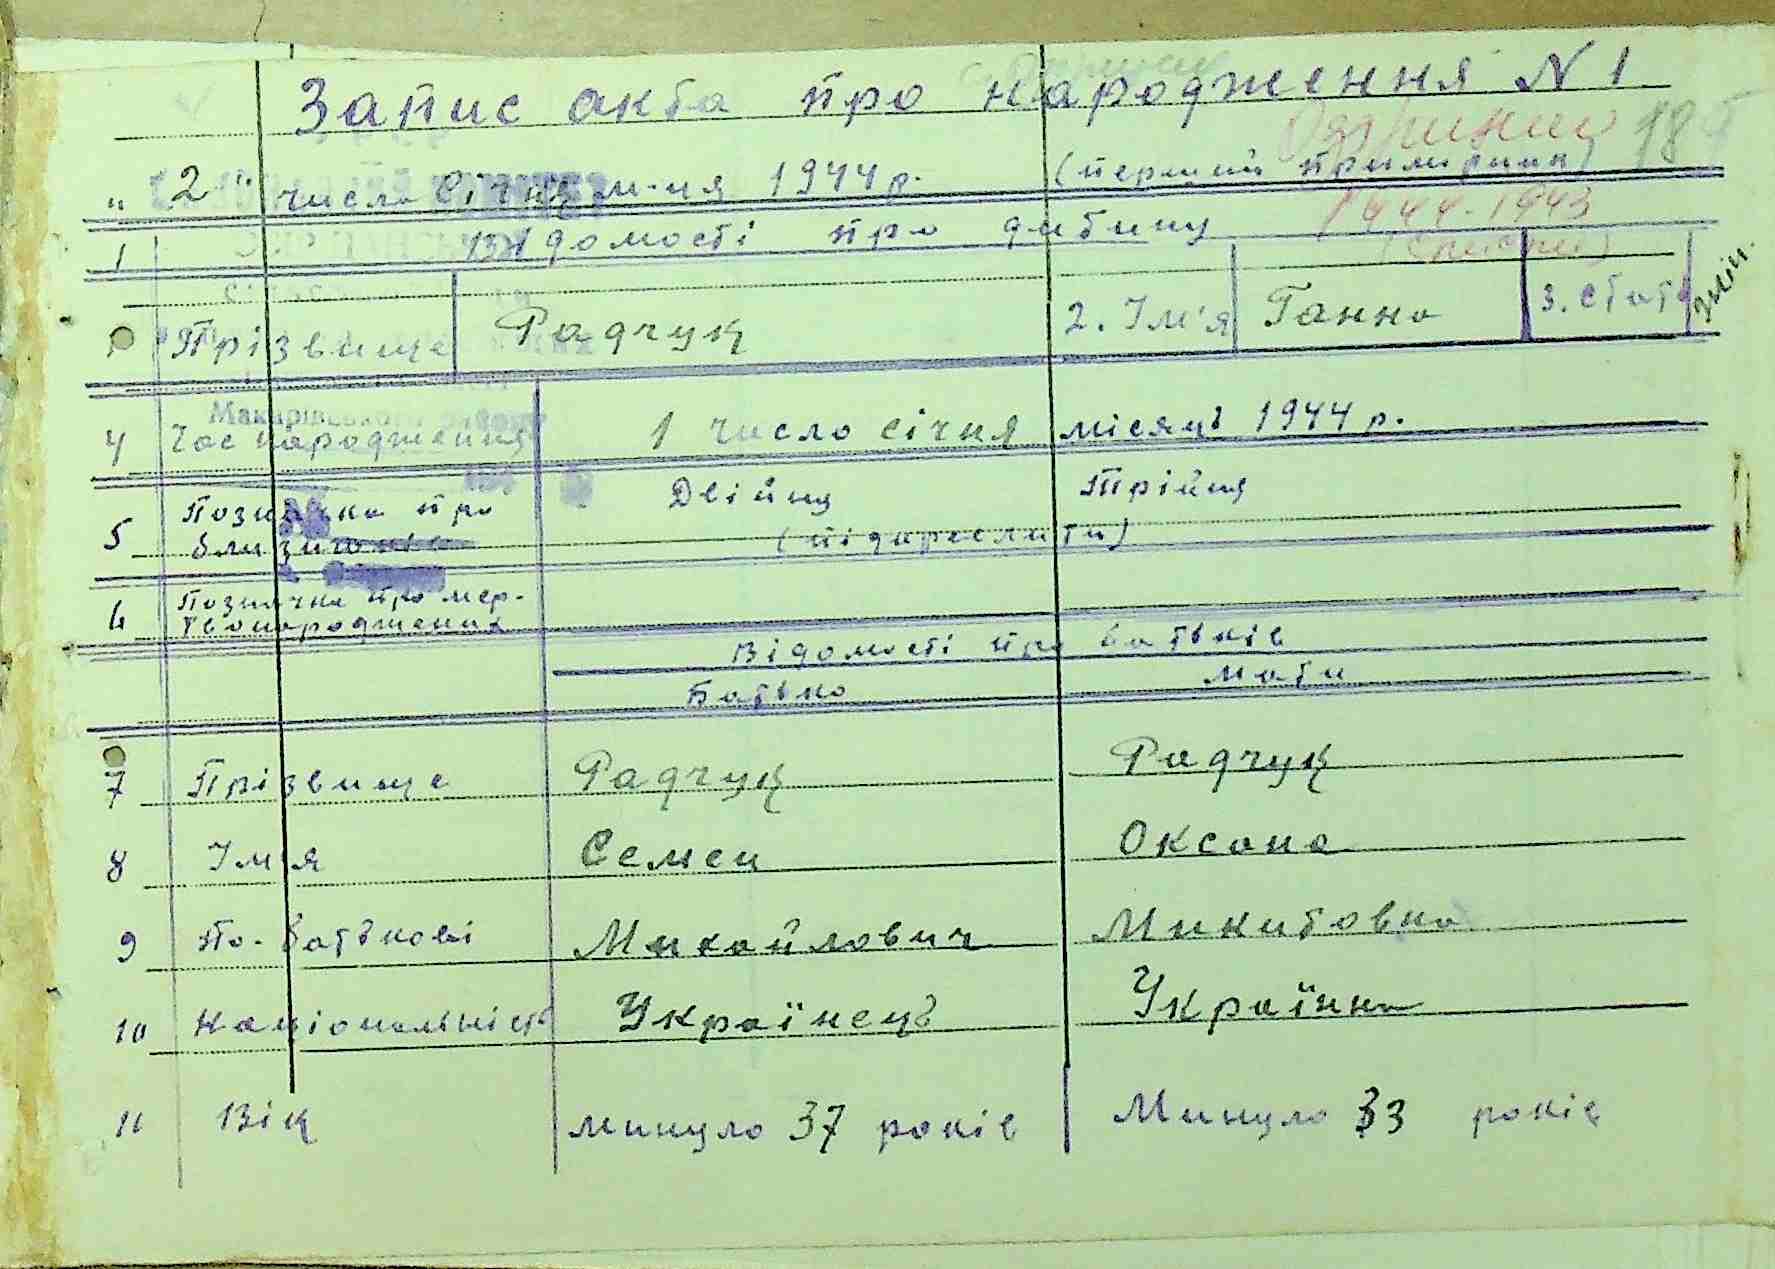 Запис акта про народження N 1
"2" число Січня м-ця 1944 р. (перший примірник)
1944-1943
1 Відомості про дитину
1 Прізвище Радчук 2. Ім'я Ганна 3. Стать жін.
Макарівського району
4 Час народження 1 число січня місяць 1944 р.
5 Позначка про близнюків Двійня Трійня
(підкреслити)
6 Позначка про мер-
твонароджених
Відомості про батьків
Батько Мати
7 Прізвище Радчук Радчук
8 Ім'я Семен Оксана
9 По-батькові Михайлович Микитовна
10 Національність Українець Українка
11 Вік минуло 37 років Минуло 33 років